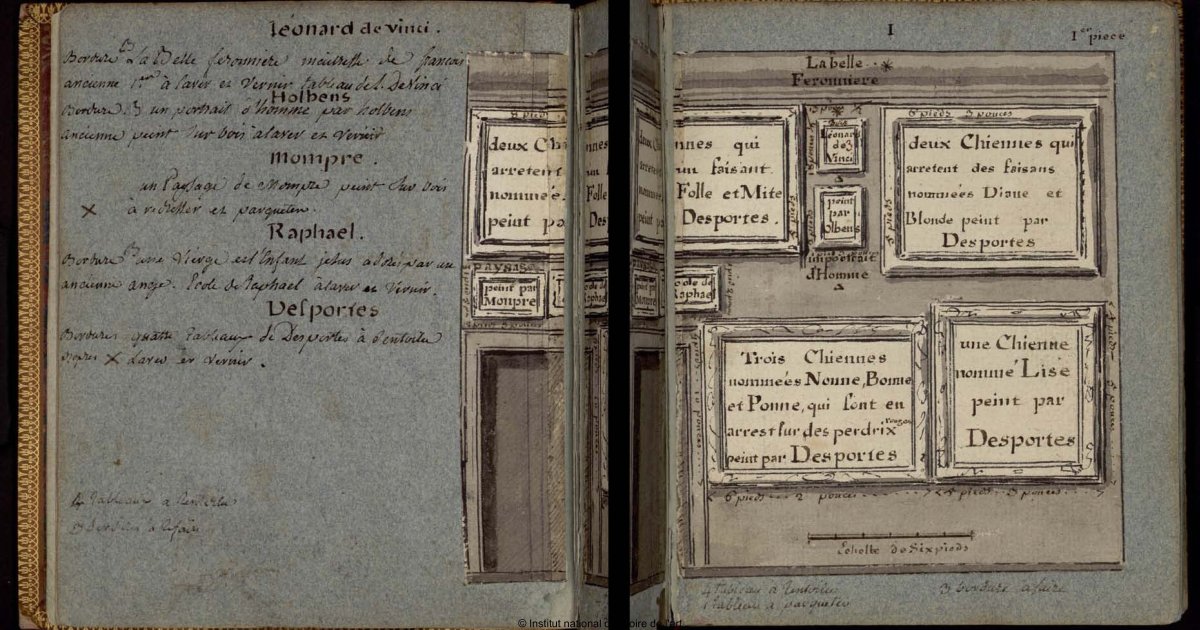 Léonard de vinci.
Bordure la Belle feronniere maitresse de françois
ancienne 1er à laver et Vernir tableau de L. De Vinci
Holbens
Bordure un portrait d'homme par holbens
ancienne peint sur bois a laver et vernir
Mompre.
un Paysage de Mompre peint sur bois
à et parqueter.
Raphael.
Bordure une Vierge et l'Enfant jesus adoré par un
ancienne ange. Ecole de Raphael à laver et Vernir.
Desportes
Bordures quatre tableaux de Desportes à rentoiler
Laver et vernir.
4 Tableaux a Rentoiler
3 bordures a faire
deux Ch
arretent
nommée
peint pa
paysage
peint par
Mompre
I
1er piece
La belle
Feronniere
nnes qui
un faisant
Folle et Mite
Desportes.
Léonard
de
Vinci
peint
par
Olbens
un portrait
d'Homme
Ecole de
Raphael
6 pieds 3 pouces
deux Chiennes qui
arretent des faisans
nommées Diane et
Blonde peint par
Desportes
Trois Chiennes
nommées Nonne, Bonne
et Ponne, qui sont en
arrest sur des perdrix rouges
peint par Desportes
une Chienne
nommé Lise
peint par
Desportes
6 pieds 2 pouces
4 pieds 3 pouces
Echelle de Six pieds
4 tableau a Rentoiler
1 tableau a parqueter
3 bordure a faire
© Institut national d'histoire de l'art